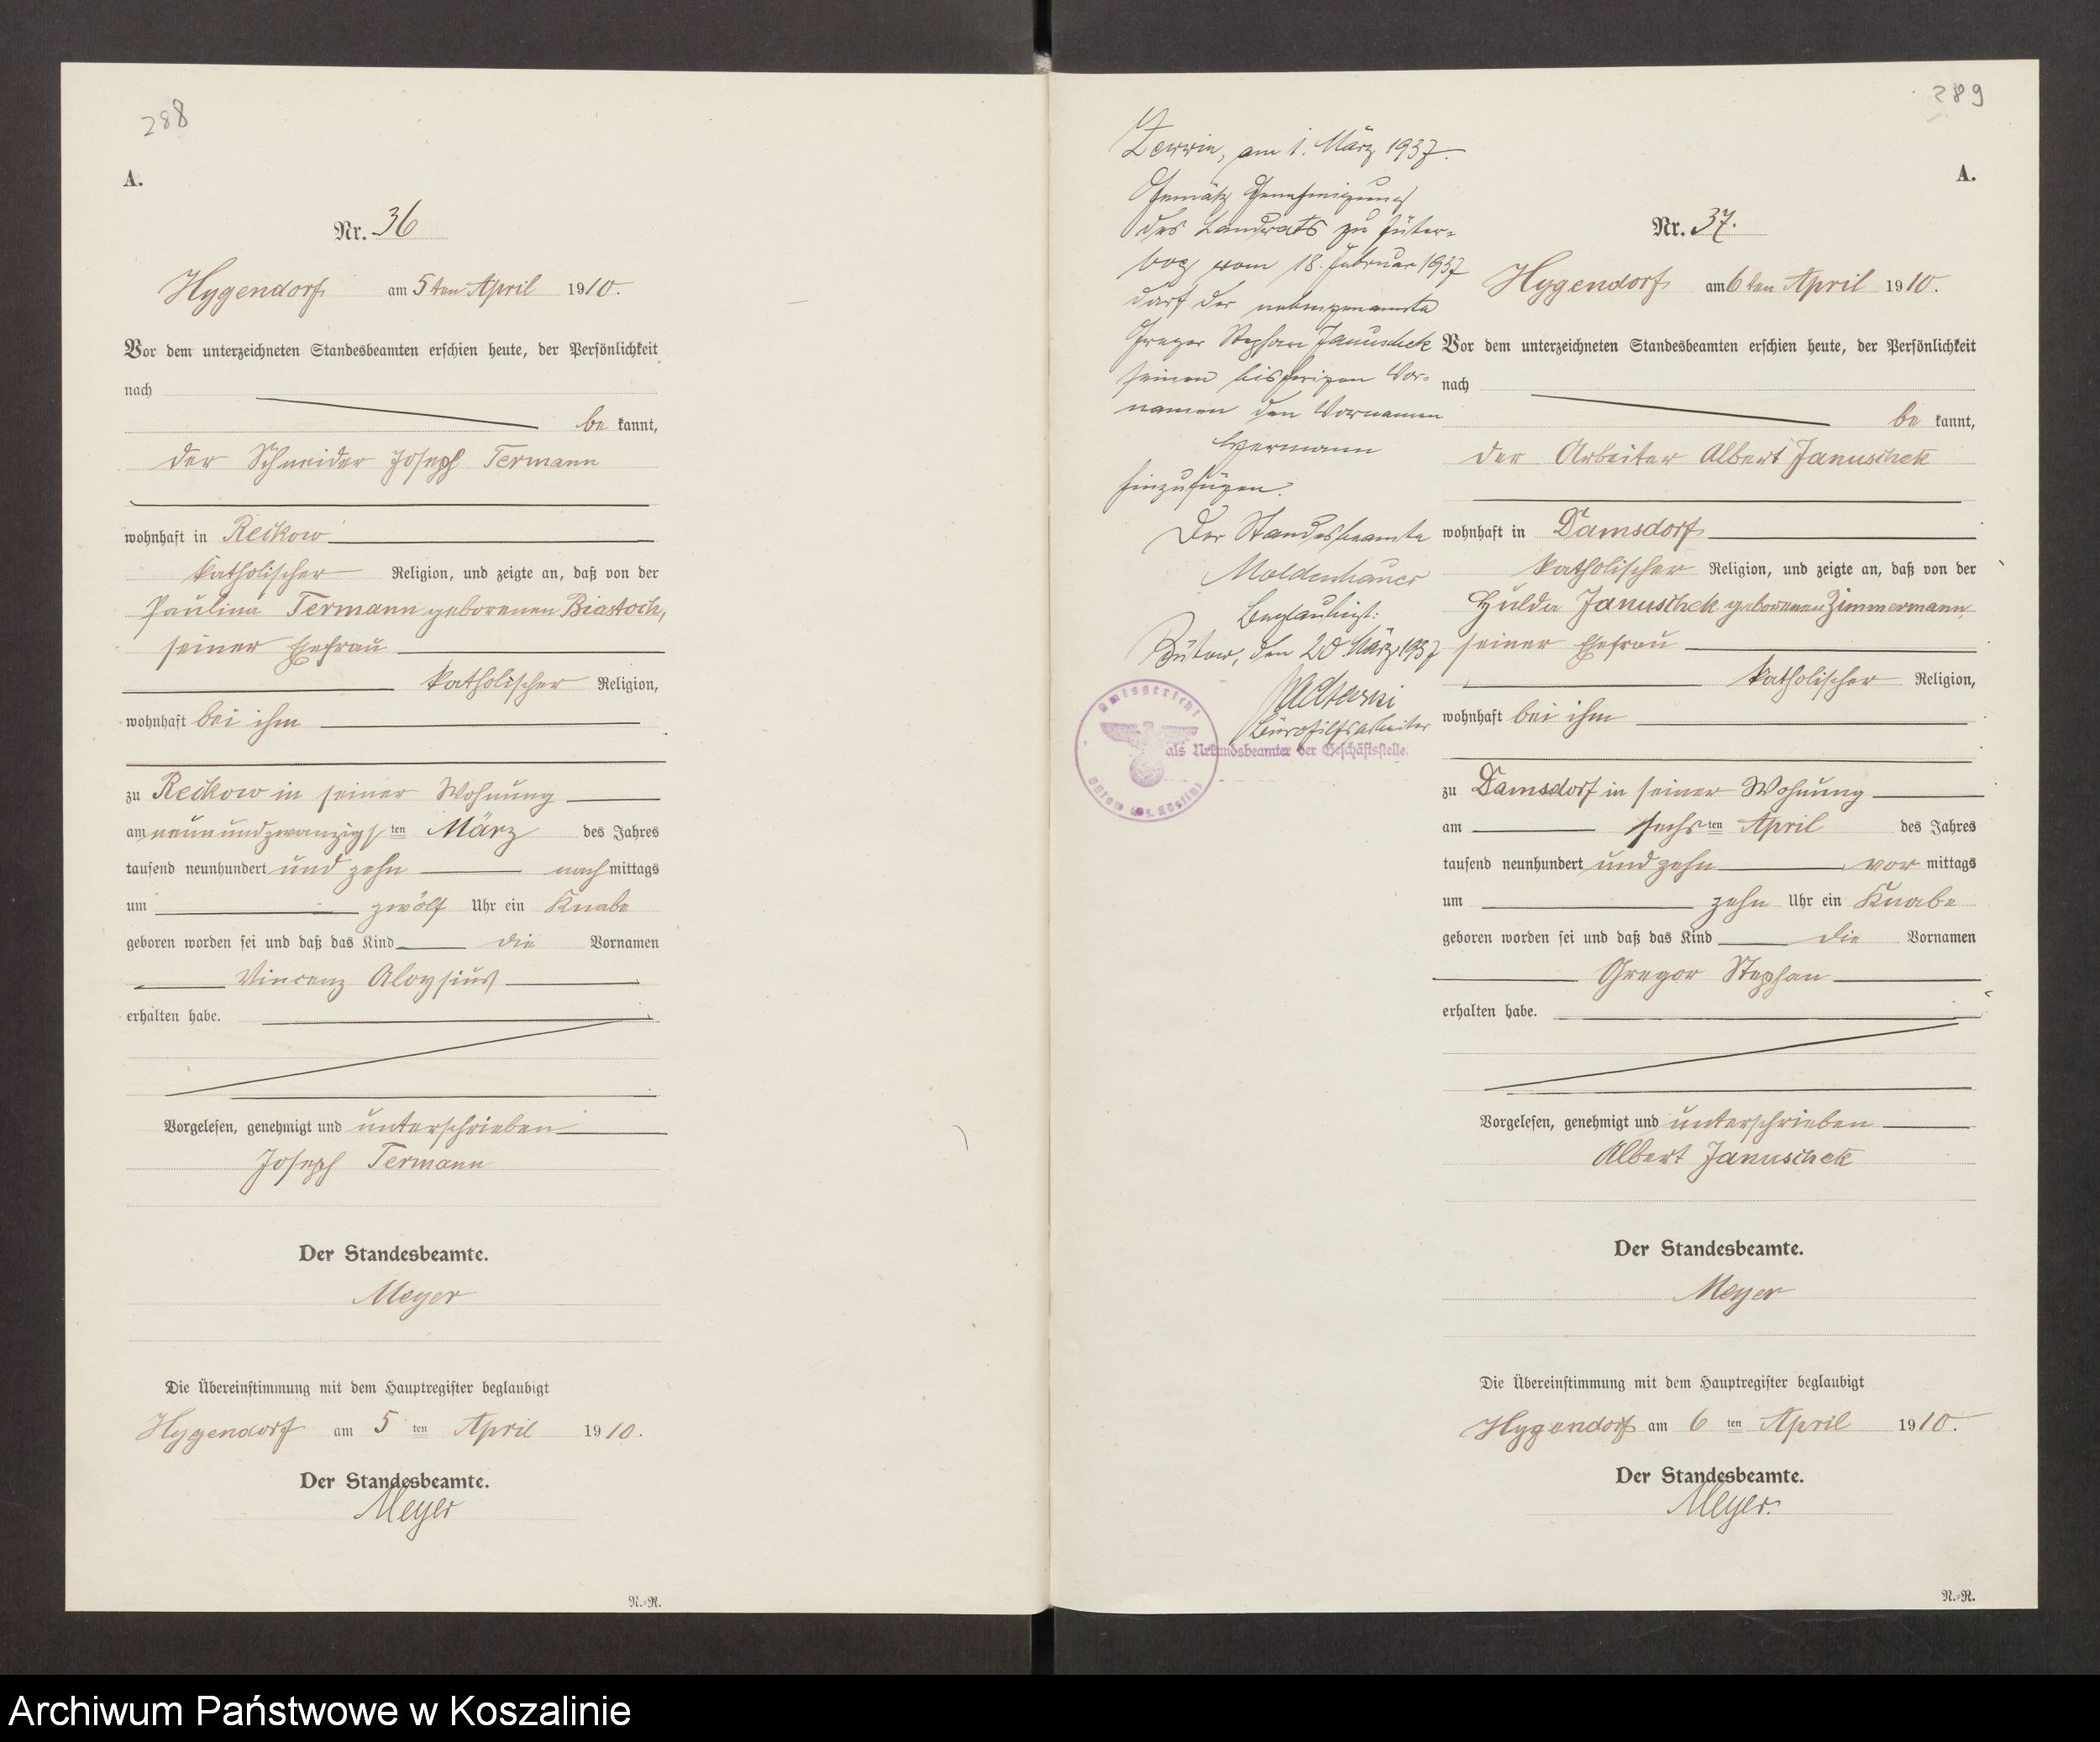 288
A.
Nr. 36
Hygendorf am 5ten April 1910.
Vor dem unterzeichneten Standesbeamten erschien heute, der Persönlichkeit
nach
be kannt,
der Schneider Joseph Termann
wohnhaft in Reckow
katholischer Religion, und zeigte an, daß von der
Paulina Termann geborenen Biastoch,
seiner Ehefrau
katholischer Religion,
wohnhaft bei ihm
zu Reckow in seiner Wohnung
am neunundzwanzigsten März des Jahres
tausend neunhundert und zehn nach mittags
um zwölf Uhr ein Knabe
geboren worden sei und daß das Kind die Vornamen
Vincenz Aloysius
erhalten habe.
Vorgelesen, genehmigt und unterschrieben
Joseph Termann
Der Standesbeamte.
Meyer
Die Übereinstimmung mit dem Hauptregister beglaubigt
Hygendorf am 5 ten April 1910.
Der Standesbeamte.
Meyer
N.-R.
289
Zerrin, am 1. März 1937.
Gemäß Genehmigung
des Landrats zu Jüter-
bog vom 18. Februar 1937
darf der nebengenannte
Gregor Stephan Januschek
seinen bisherigen Vor-
namen den Vornamen
Hermann
hinzufügen.
Der Standesbeamte
Moldenhauer
Beglaubigt:
Bütow, den 20 März 1937
Bürohilfsarbeiter
als Urkundsbeamter der Geschäftsstelle.
Amtsgericht
Bütow Bez. Köslin
A.
Nr. 37.
Hygendorf am 6ten April 1910.
Vor dem unterzeichneten Standesbeamten erschien heute, der Persönlichkeit
nach
be kannt,
der Arbeiter Albert Januschek
wohnhaft in Damsdorf
katholischer Religion, und zeigte an, daß von der
Hulda Januschek geborenen Zimmermann,
seiner Ehefrau
katholischer Religion,
wohnhaft bei ihm
zu Damsdorf in seiner Wohnung
am sechs ten April des Jahres
tausend neunhundert und zehn vor mittags
um zehn Uhr ein Knabe
geboren worden sei und daß das Kind die Vornamen
Gregor Stephan
erhalten habe.
Vorgelesen, genehmigt und unterschrieben
Albert Januschek
Der Standesbeamte.
Meyer
Die Übereinstimmung mit dem Hauptregister beglaubigt
Hygendorf am 6 ten April 1910.
Der Standesbeamte.
Meyer.
N.-R.
Archiwum Państwowe w Koszalinie